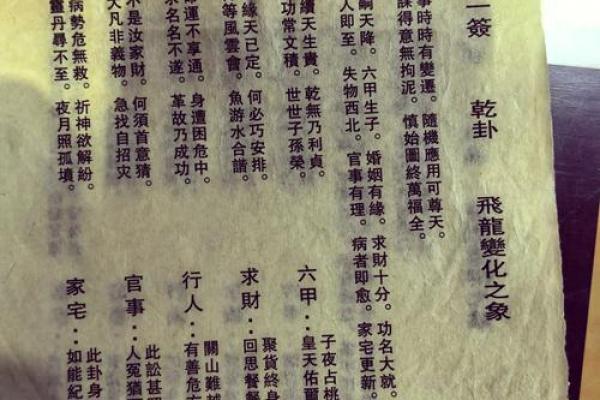 一簽 乾卦 飛龍變化之象
事時時有變遷。隨機應用可尊天。
課得意無拘泥。慎始圖終萬福全。
嗣天降。六甲生子。婚姻有緣。求財十分。功名大就。
人即至。失物西北。官事有理。病者即愈。家宅更新。
續天生貴。乾無乃利貞。
功常文積。世世子孫榮。
緣天已定。何必巧安排。
等風雲會。魚游水合諧。
命運不享通。身遭困危中。
求名名不遂。革故乃成功。
不是汝家財。何須首意猜。
大凡非義物。急找自招灾
病勢危無救。祈神欲解紛。
靈丹尋不至。夜月照孤墳。
子夜占桃
六甲：皇天佑
聚貨終身
求財：回思餐餐
關山難越
行人：有善危
此訟甚
官事：人冤猶
此卦身
家宅：如能紀